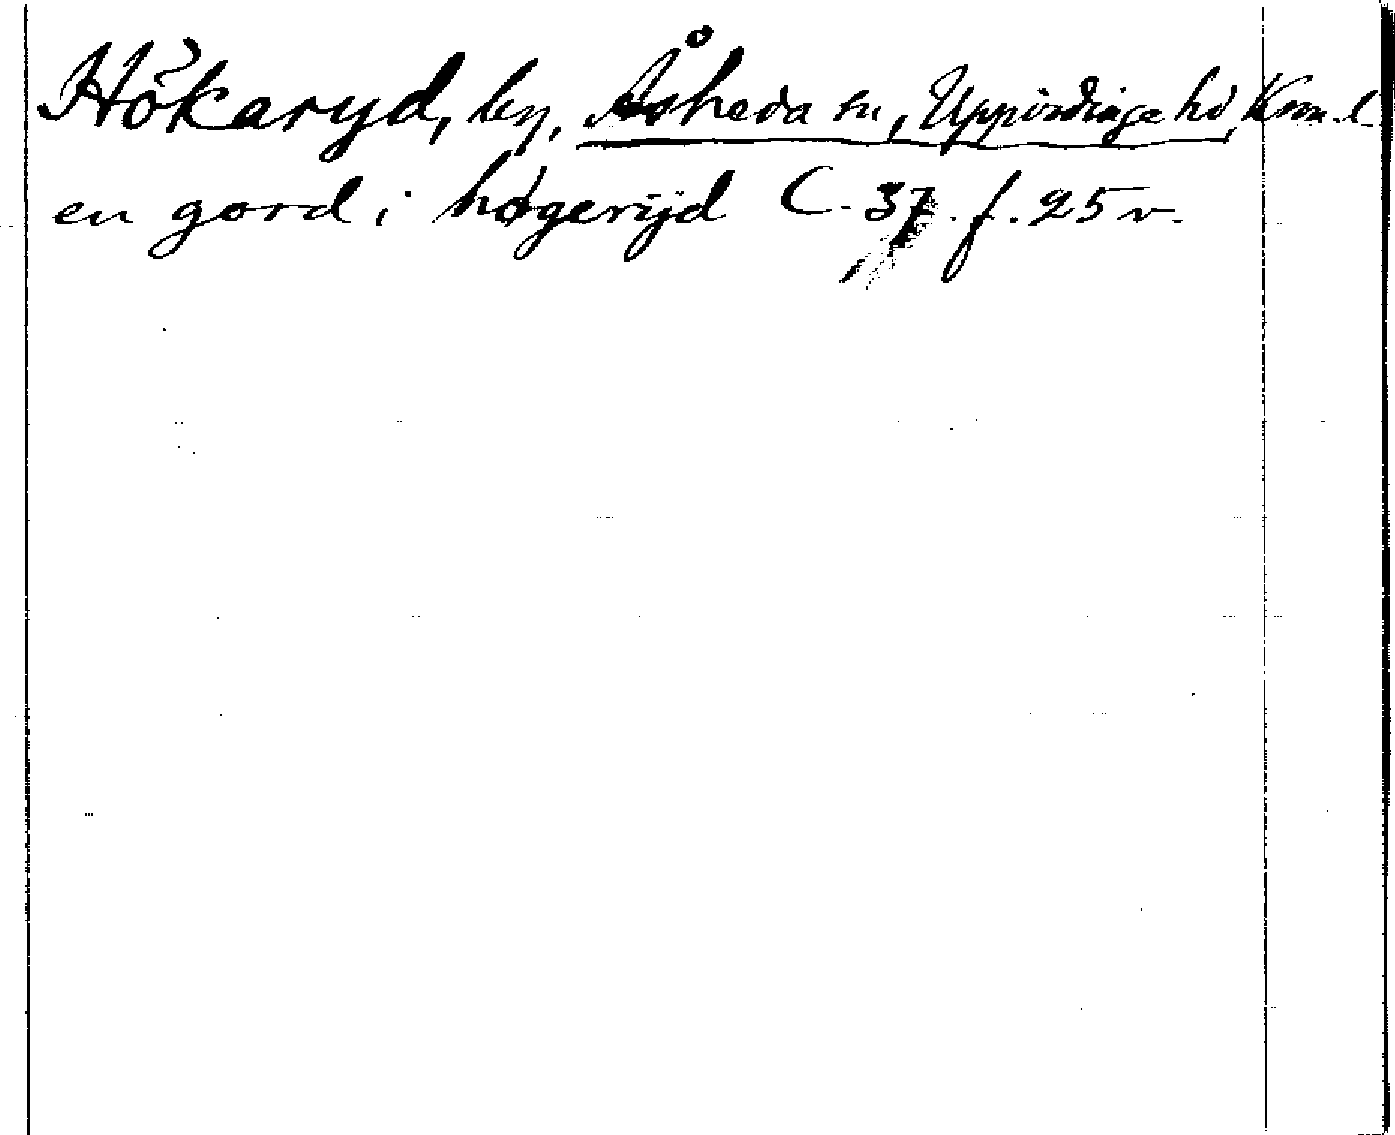 Hökaryd, by, Åsheda sn, Uppvidinge hd, Kron. l.
en gord i høgerijd C. 37. f. 25 v.